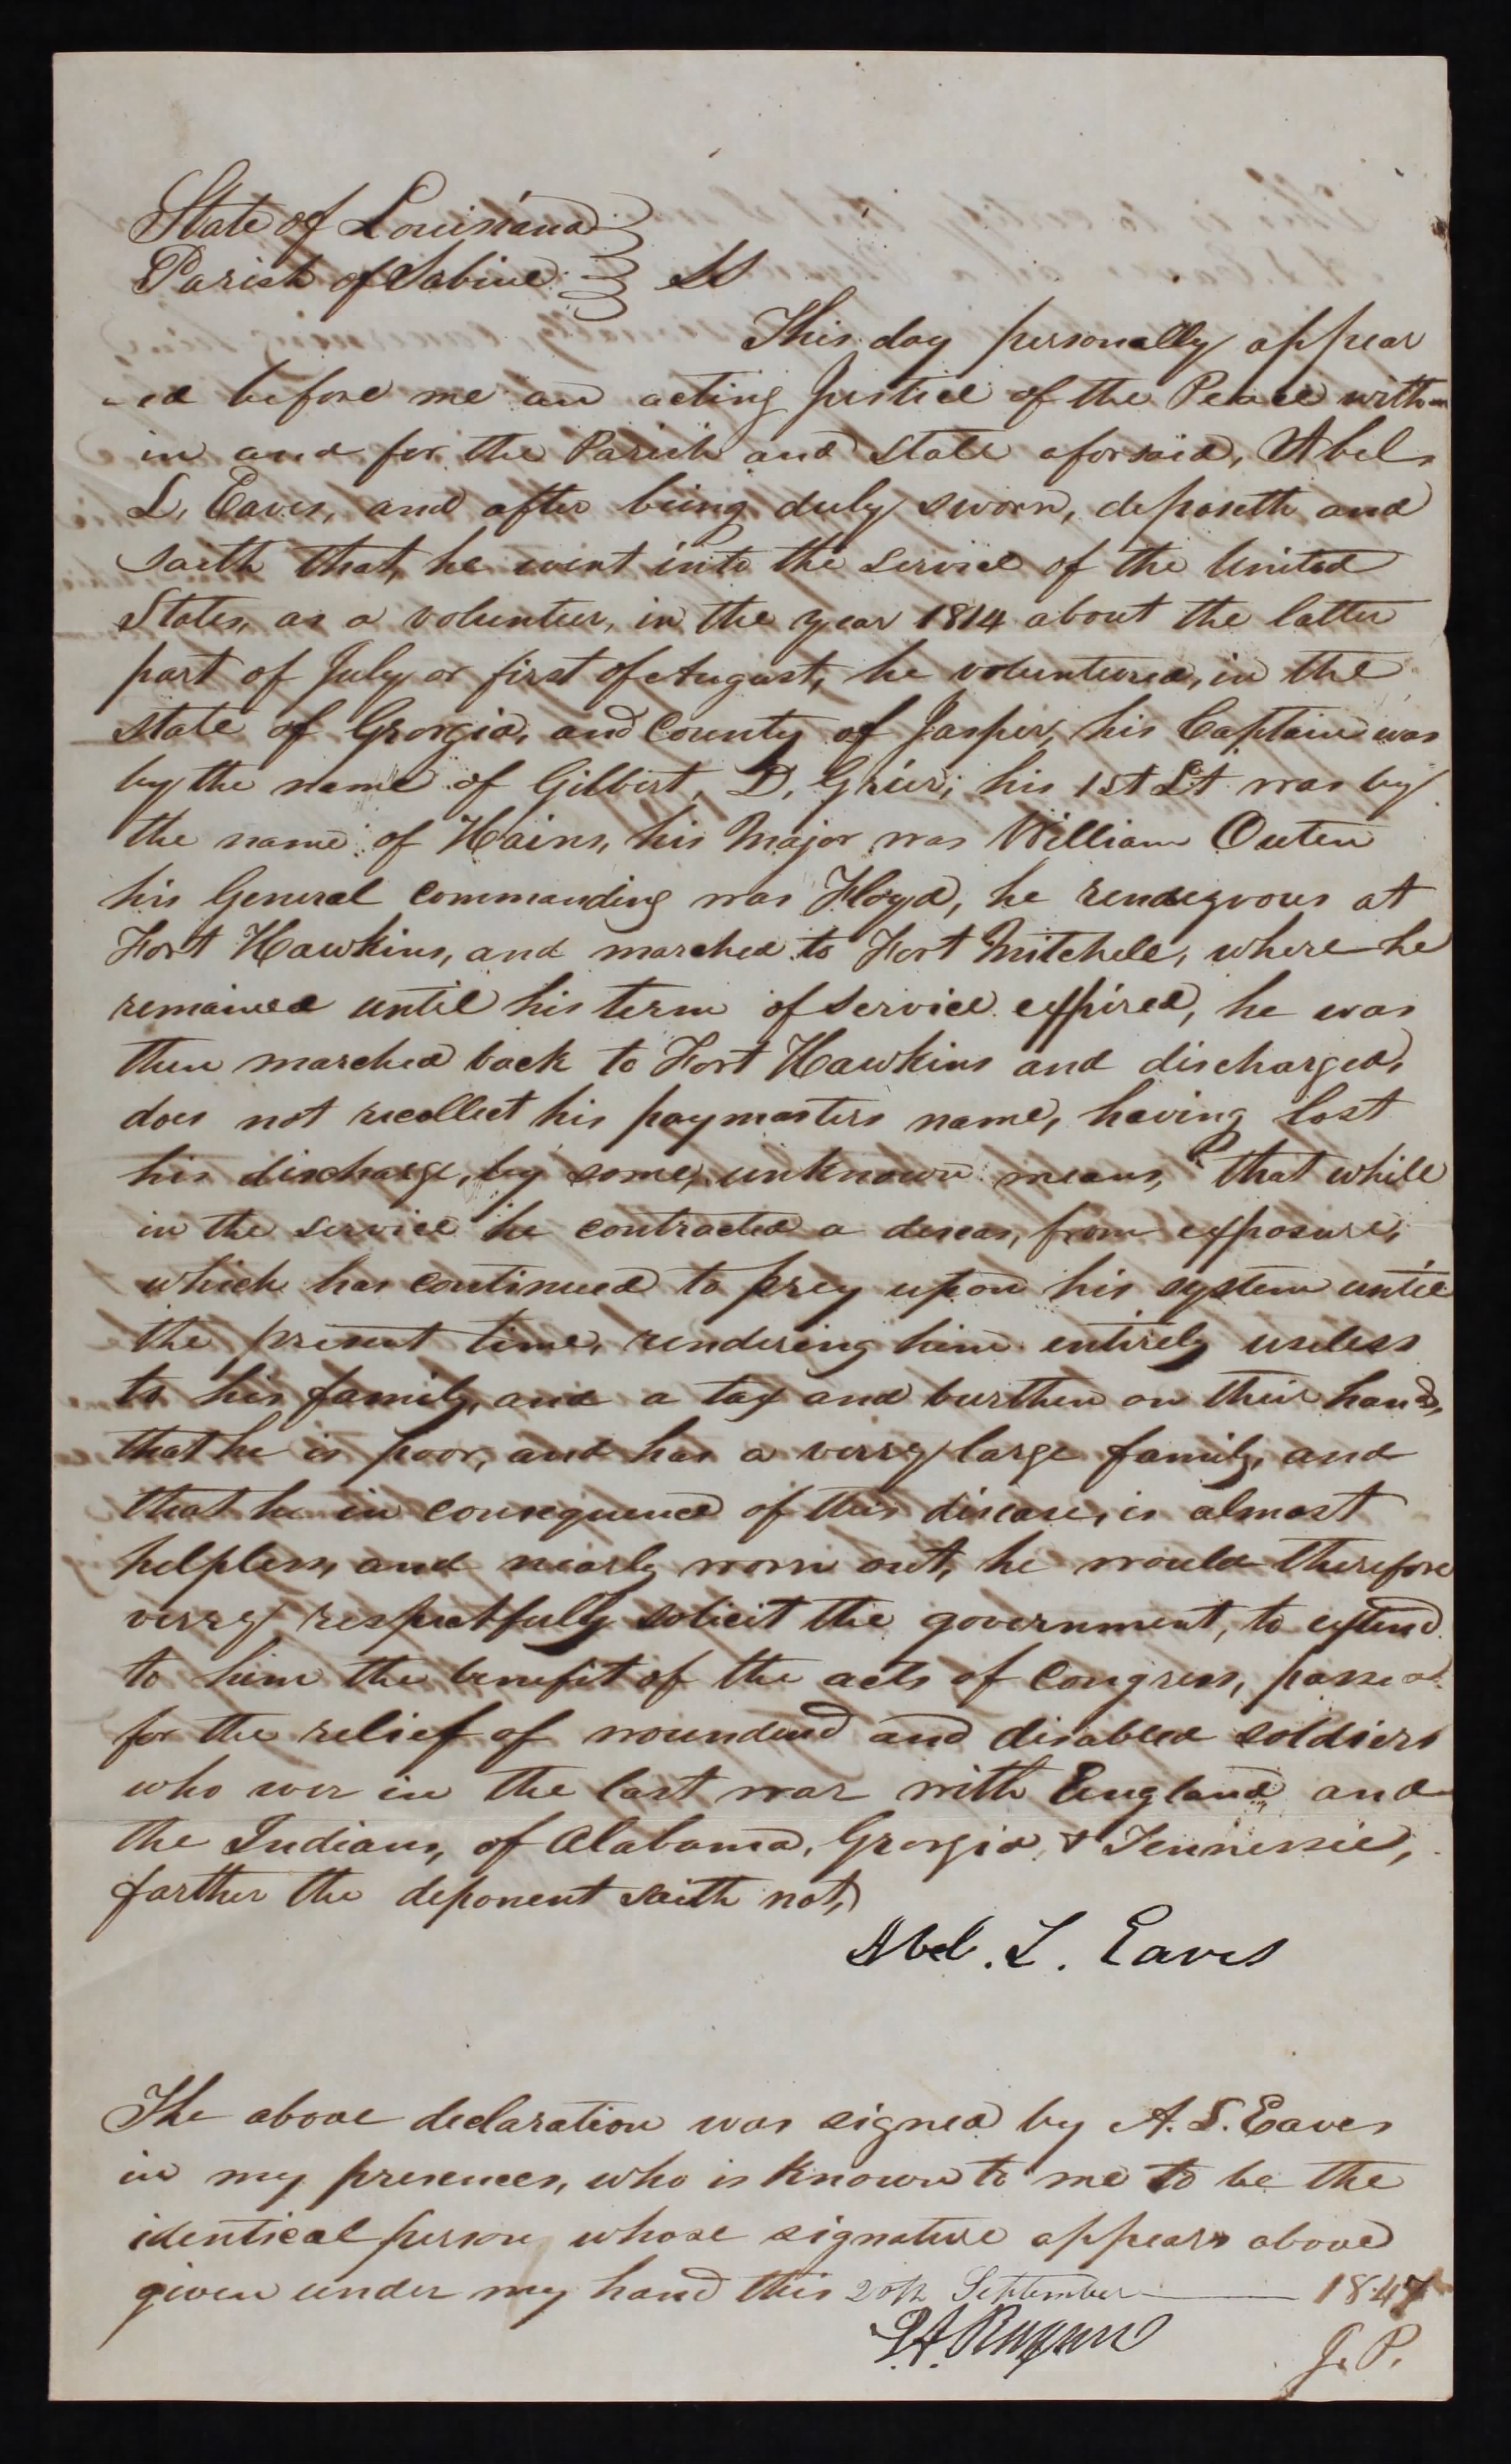 State of Louisiana
Parish of Sabine SS
This day personally appear
ed before me an acting Justice of the Peace with-
in and for the Parish and State aforsaid, Abel
L. Eaves, and after being duly sworn, deposeth and
saith that, he went into the service of the United
States, as a volunteer, in the year 1814 about the latter
part of July or first of August, he voluntured, in the
state of Georgia, and County of Jasper, his Captain was
by the name of Gilbert, D, Grier; his 1st Lt was by
the name of Hains, his Major was William Outen
his General commanding was Floyd, he rendezvous at
Fort Hawkins, and marched to Fort Mitchele, where he
remained until his term of service expired, he was
then marched back to Fort Hawkins and discharged,
does not recollect his paymasters name, having lost
his discharge, by some, unknown means, that while
in the service he contracted a deseas, from exposure,
which has continued to prey upon his system until
the present time, rendering him entirely useless
to his family, and a tax and burthen on their hands,
that he is poor, and has a verry large family, and
that he in consequence of this disease, is almost
helpless, and nearly worn out, he would therefore
verry respectfully solicit the government, to extend
to him the benefit of the acts of Congress, passed
for the relief of wounded and disabled soldiers
who wer in the last war with England and
the Indians, of Alabama, Georgia, & Tennessee,
farther the deponent saith not,
Abel. L. Eaves
The above declaration was signed by A. L. Eaves
in my presences, who is known to me to be the
identical person whose signature appears above
given under my hand this 20th September 1847
J. P.